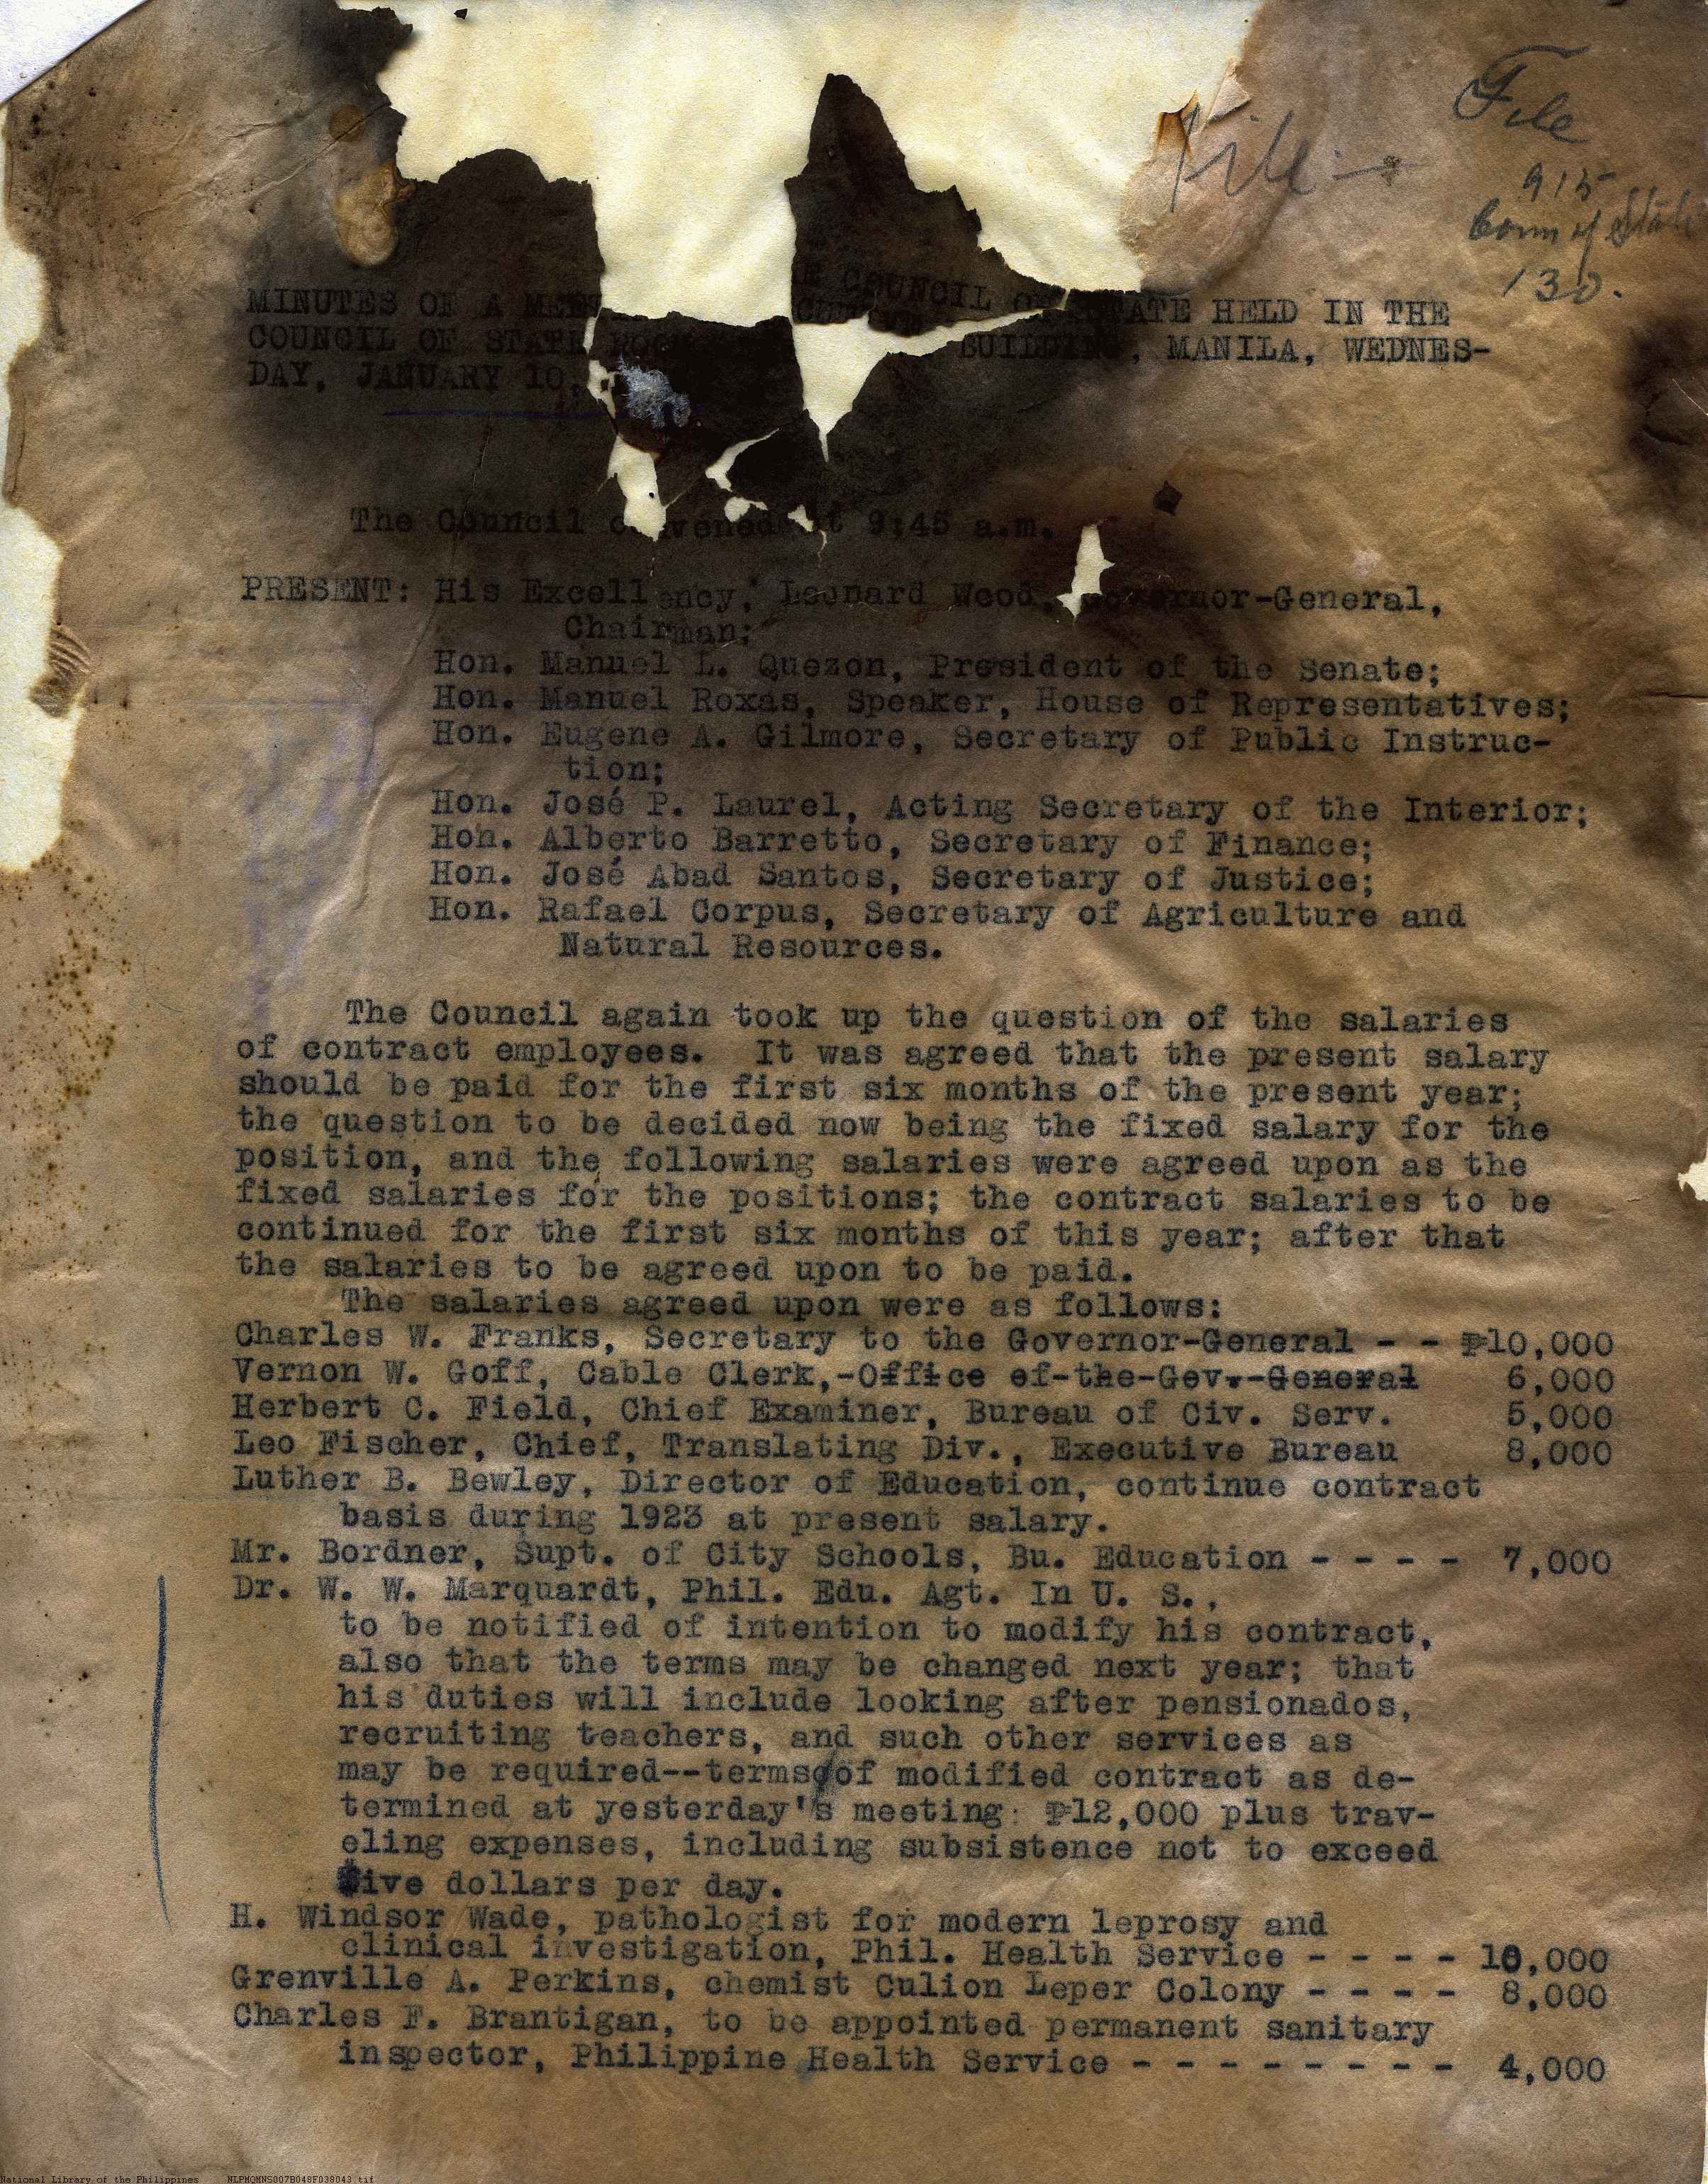 File
File
915
Coun of State
130.
MINUTES OF A MEE COUNCIL OF STATE HELD IN THE
COUNCIL OF STATE BUILDING, MANILA, WEDNES-
DAY, JANUARY 10,
The Council convened at 9:45 a.m.
PRESENT: His Excellency, Leonard Wood, Governor-General,
Chairman;
Hon. Manuel L. Quezon, President of the Senate;
Hon. Manuel Roxas, Speaker, House of Representatives;
Hon. Eugene A. Gilmore, Secretary of Public Instruc-
tion;
Hon. José P. Laurel, Acting Secretary of the Interior;
Hon. Alberto Barretto, Secretary of Finance;
Hon. José Abad Santos, Secretary of Justice;
Hon. Rafael Corpus, Secretary of Agriculture and
Natural Resources.
The Council again took up the question of the salaries
of contract employees. It was agreed that the present salary
should be paid for the first six months of the present year;
the question to be decided now being the fixed salary for the
position, and the following salaries were agreed upon as the
fixed salaries for the positions; the contract salaries to be
continued for the first six months of this year; after that
the salaries to be agreed upon to be paid.
The salaries agreed upon were as follows:
Charles W. Franks, Secretary to the Governor-General - - ₱10,000
Vernon W. Goff, Cable Clerk,-Office of-the-Gov.-General 6,000
Herbert C. Field, Chief Examiner, Bureau of Civ. Serv. 5,000
Leo Fischer, Chief, Translating Div., Executive Bureau 8,000
Luther B. Bewley, Director of Education, continue contract
basis during 1923 at present salary.
Mr. Bordner, Supt. of City Schools, Bu. Education - - - - 7,000
Dr. W. W. Marquardt, Phil. Edu. Agt. In U. S.,
to be notified of intention to modify his contract,
also that the terms may be changed next year; that
his duties will include looking after pensionados,
recruiting teachers, and such other services as
may be required--terms of modified contract as de-
termined at yesterday's meeting: ₱12,000 plus trav-
eling expenses, including subsistence not to exceed
five dollars per day.
H. Windsor Wade, pathologist for modern leprosy and
clinical investigation, Phil. Health Service - - - - 10,000
Grenville A. Perkins, chemist Culion Leper Colony - - - - 8,000
Charles F. Brantigan, to be appointed permanent sanitary
inspector, Philippine Health Service - - - - - - - - 4,000
National Library of the Philippines NLPMQMNS007B048F038043.tif